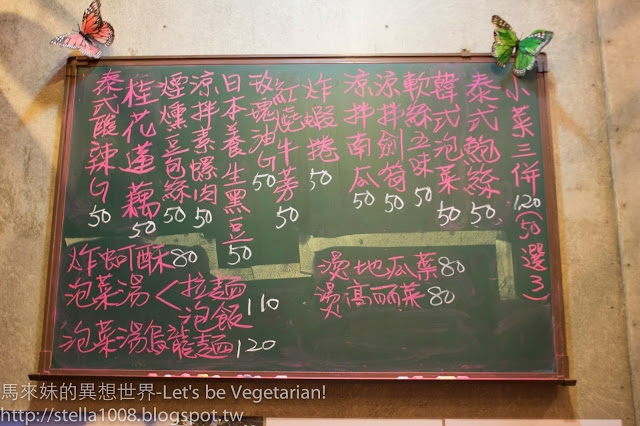 小菜三併120(50選3)
泰式鮑絲50
韓式泡菜50
軟絲五味50
涼拌劍筍50
涼拌南瓜50
炸蝦捲50
紅燒牛蒡50
玫瑰油G50
日本養生黑豆50
涼拌素螺肉50
煙燻豆包絲50
桂花蓮藕50
泰式酸辣G50
炸蚵酥80
泡菜湯<拉麵 泡飯110
泡菜湯烏龍麵120
燙地瓜葉80
燙高丽菜80
馬來妹的異想世界-Let's be Vegetarian!
http://stella1008.blogspot.tw